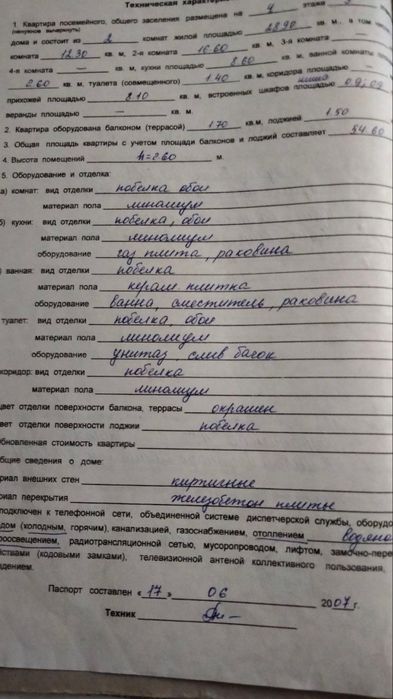 Техническая характери
1. Квартира посемейного, общего заселения размещена на 4 этаже
(ненужное вычеркнуть)
дома и состоит из 2 комнат жилой площадью 28.90 кв. м., в том
комната 12.30 кв. м, 2-я комната 16.60 кв. м, 3-я комната —
4-я комната — кв. м, кухни площадью 8.60 кв. м, ванной комнаты
2.60 кв. м, туалета (совмещенного) 1.40 кв. м, коридора площадью —
прихожей площадью 8.10 кв. м, встроенных шкафов площадью ниша 0.9;
веранды площадью — кв. м.
2. Квартира оборудована балконом (террасой) 1.70 кв.м, лоджией 1.50
3. Общая площадь квартиры с учетом площади балконов и лоджий составляет 54.60
4. Высота помещений h=2.60 м.
5. Оборудование и отделка:
а) комнат: вид отделки побелка обои
материал пола линолиум
б) кухни: вид отделки побелка, обои
материал пола линолиум
оборудование газ плита, раковина
) ванная: вид отделки побелка
материал пола керам плитка
оборудование ванна, сместитель, раковина
туалет: вид отделки побелка, обои
материал пола линолиум
оборудование унитаз слив бачок
коридор: вид отделки побелка
материал пола линолиум
цвет отделки поверхности балкона, террасы окрашен
вет отделки поверхности лоджии побелка
бновленная стоимость квартиры
бщие сведения о доме:
риал внешних стен кирпичные
риал перекрытия железобетон плиты
подключен к телефонной сети, объединенной системе диспетчерской службы, оборудо
дом (холодным, горячим), канализацией, газоснабжением, отоплением водяно
роосвещением, радиотрансляционной сетью, мусоропроводом, лифтом, замочно-пере
йствами (кодовыми замками), телевизионной антеной коллективного пользования,
дением.
Паспорт составлен «17» 06 2007 г.
Техник